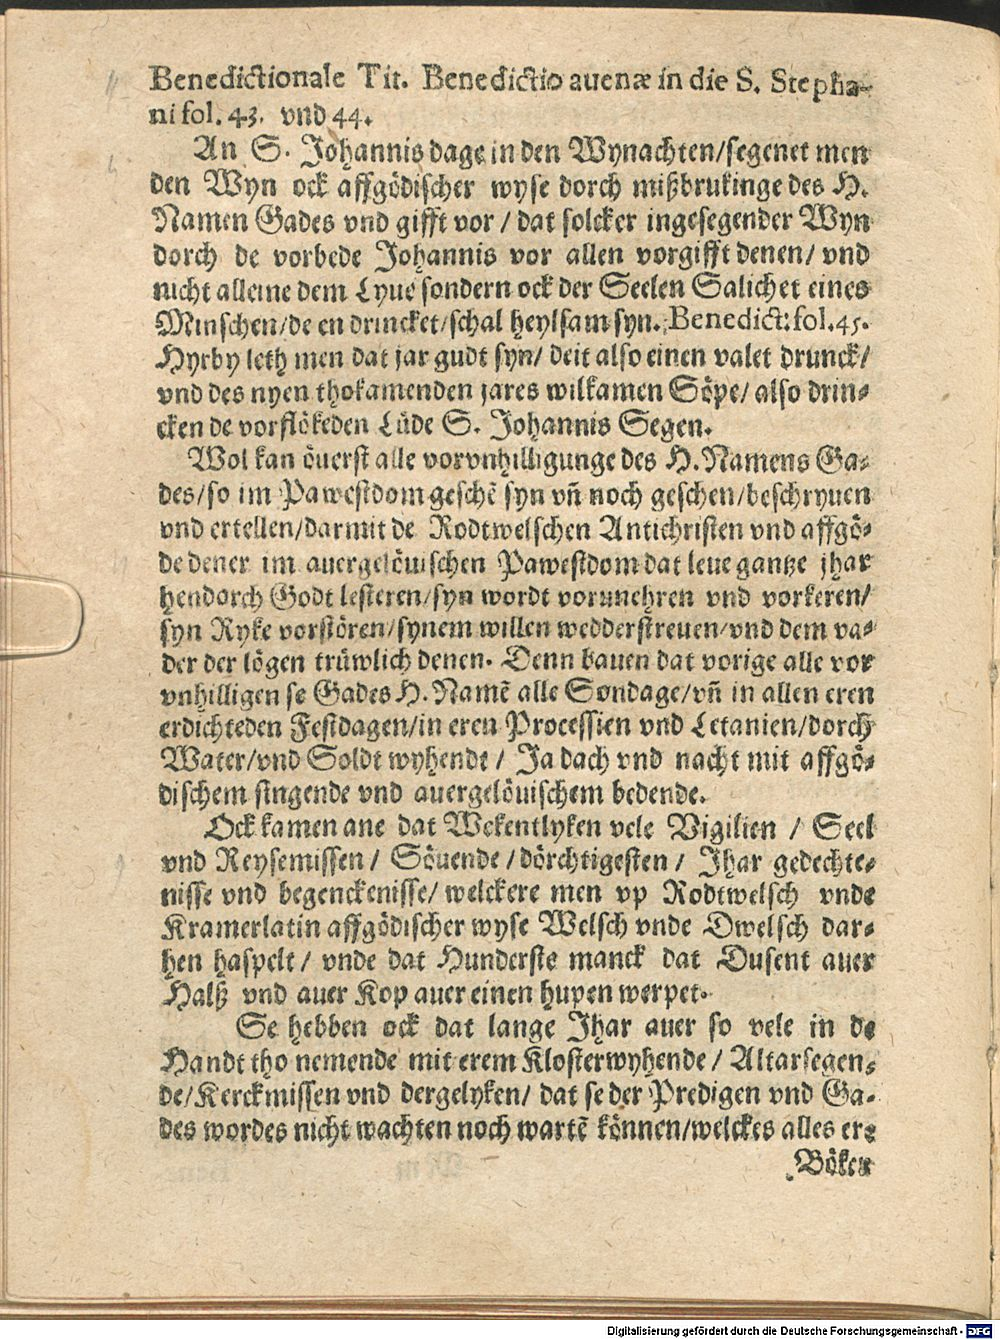 Benedictionale Tit. Benedictio auenæ in die S. Stepha-
ni fol. 43. vnd 44.
An S. Johannis dage in den Wynachten/segenet men
den Wyn ock affgödischer wyse dorch mißbrukinge des H.
Namen Gades vnd gifft vor / dat solcker ingesegender Wyn
dorch de vorbede Johannis vor allen vorgifft denen/ vnd
nicht alleine dem Lyue sondern ock der Seelen Salichet eines
Minschen/de en drincket/schal heylsam syn. Benedict: fol. 45.
Hyrby leth men dat jar gudt syn/ deit also einen valet drunck/
vnd des nyen thokamenden jares wilkamen Söpe/ also drin-
cken de vorflökeden Lüde S. Johannis Segen.
Wol kan öuerst alle vorvnhilligunge des H. Namens Ga-
des/so im Pawestdom geschē syn vñ noch geschen/beschryuen
vnd ertellen/darmit de Rodtwelschen Antichristen vnd affgö-
de dener im auergelöuischen Pawestdom dat leue gantze jhar
hendorch Godt lesteren/syn wordt vorunehren vnd vorkeren/
syn Ryke vorstören/synem willen wedderstreuen/vnd dem va-
der der lögen trüwlich denen. Denn bauen dat vorige alle vor
vnhilligen se Gades H. Namē alle Sondage/vñ in allen eren
erdichteden Festdagen/in eren Processien vnd Letanien/dorch
Water/vnd Soldt wyhende / Ja dach vnd nacht mit affgö-
dischem singende vnd auergelöuischem bedende.
Ock kamen ane dat Wekentlyken vele Vigilien / Seel
vnd Reysemissen / Söuende / dörchtigesten / Jhar gedechte-
nisse vnd begenckenisse/ welckere men vp Rodtwelsch vnde
Kramerlatin affgödischer wyse Welsch vnde Dwelsch dar-
hen haspelt / vnde dat Hunderste manck dat Dusent auer
Halß vnd auer Kop auer einen hupen werpet.
Se hebben ock dat lange Jhar auer so vele in de
Handt tho nemende mit erem Klosterwyhende / Altarsegen-
de/Kerckmissen vnd dergelyken/ dat se der Predigen vnd Ga-
des wordes nicht wachten noch wartē können/welckes alles er-
Böker
Digitalisierung gefördert durch die Deutsche Forschungsgemeinschaft - DFG